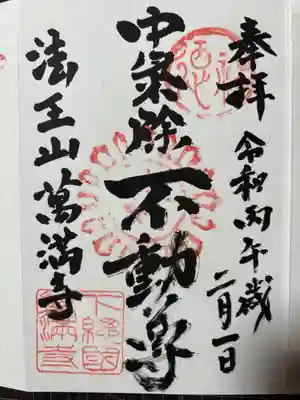 奉拝
令和丙午歳
二月一日
中気除
不動尊
法王山萬満寺